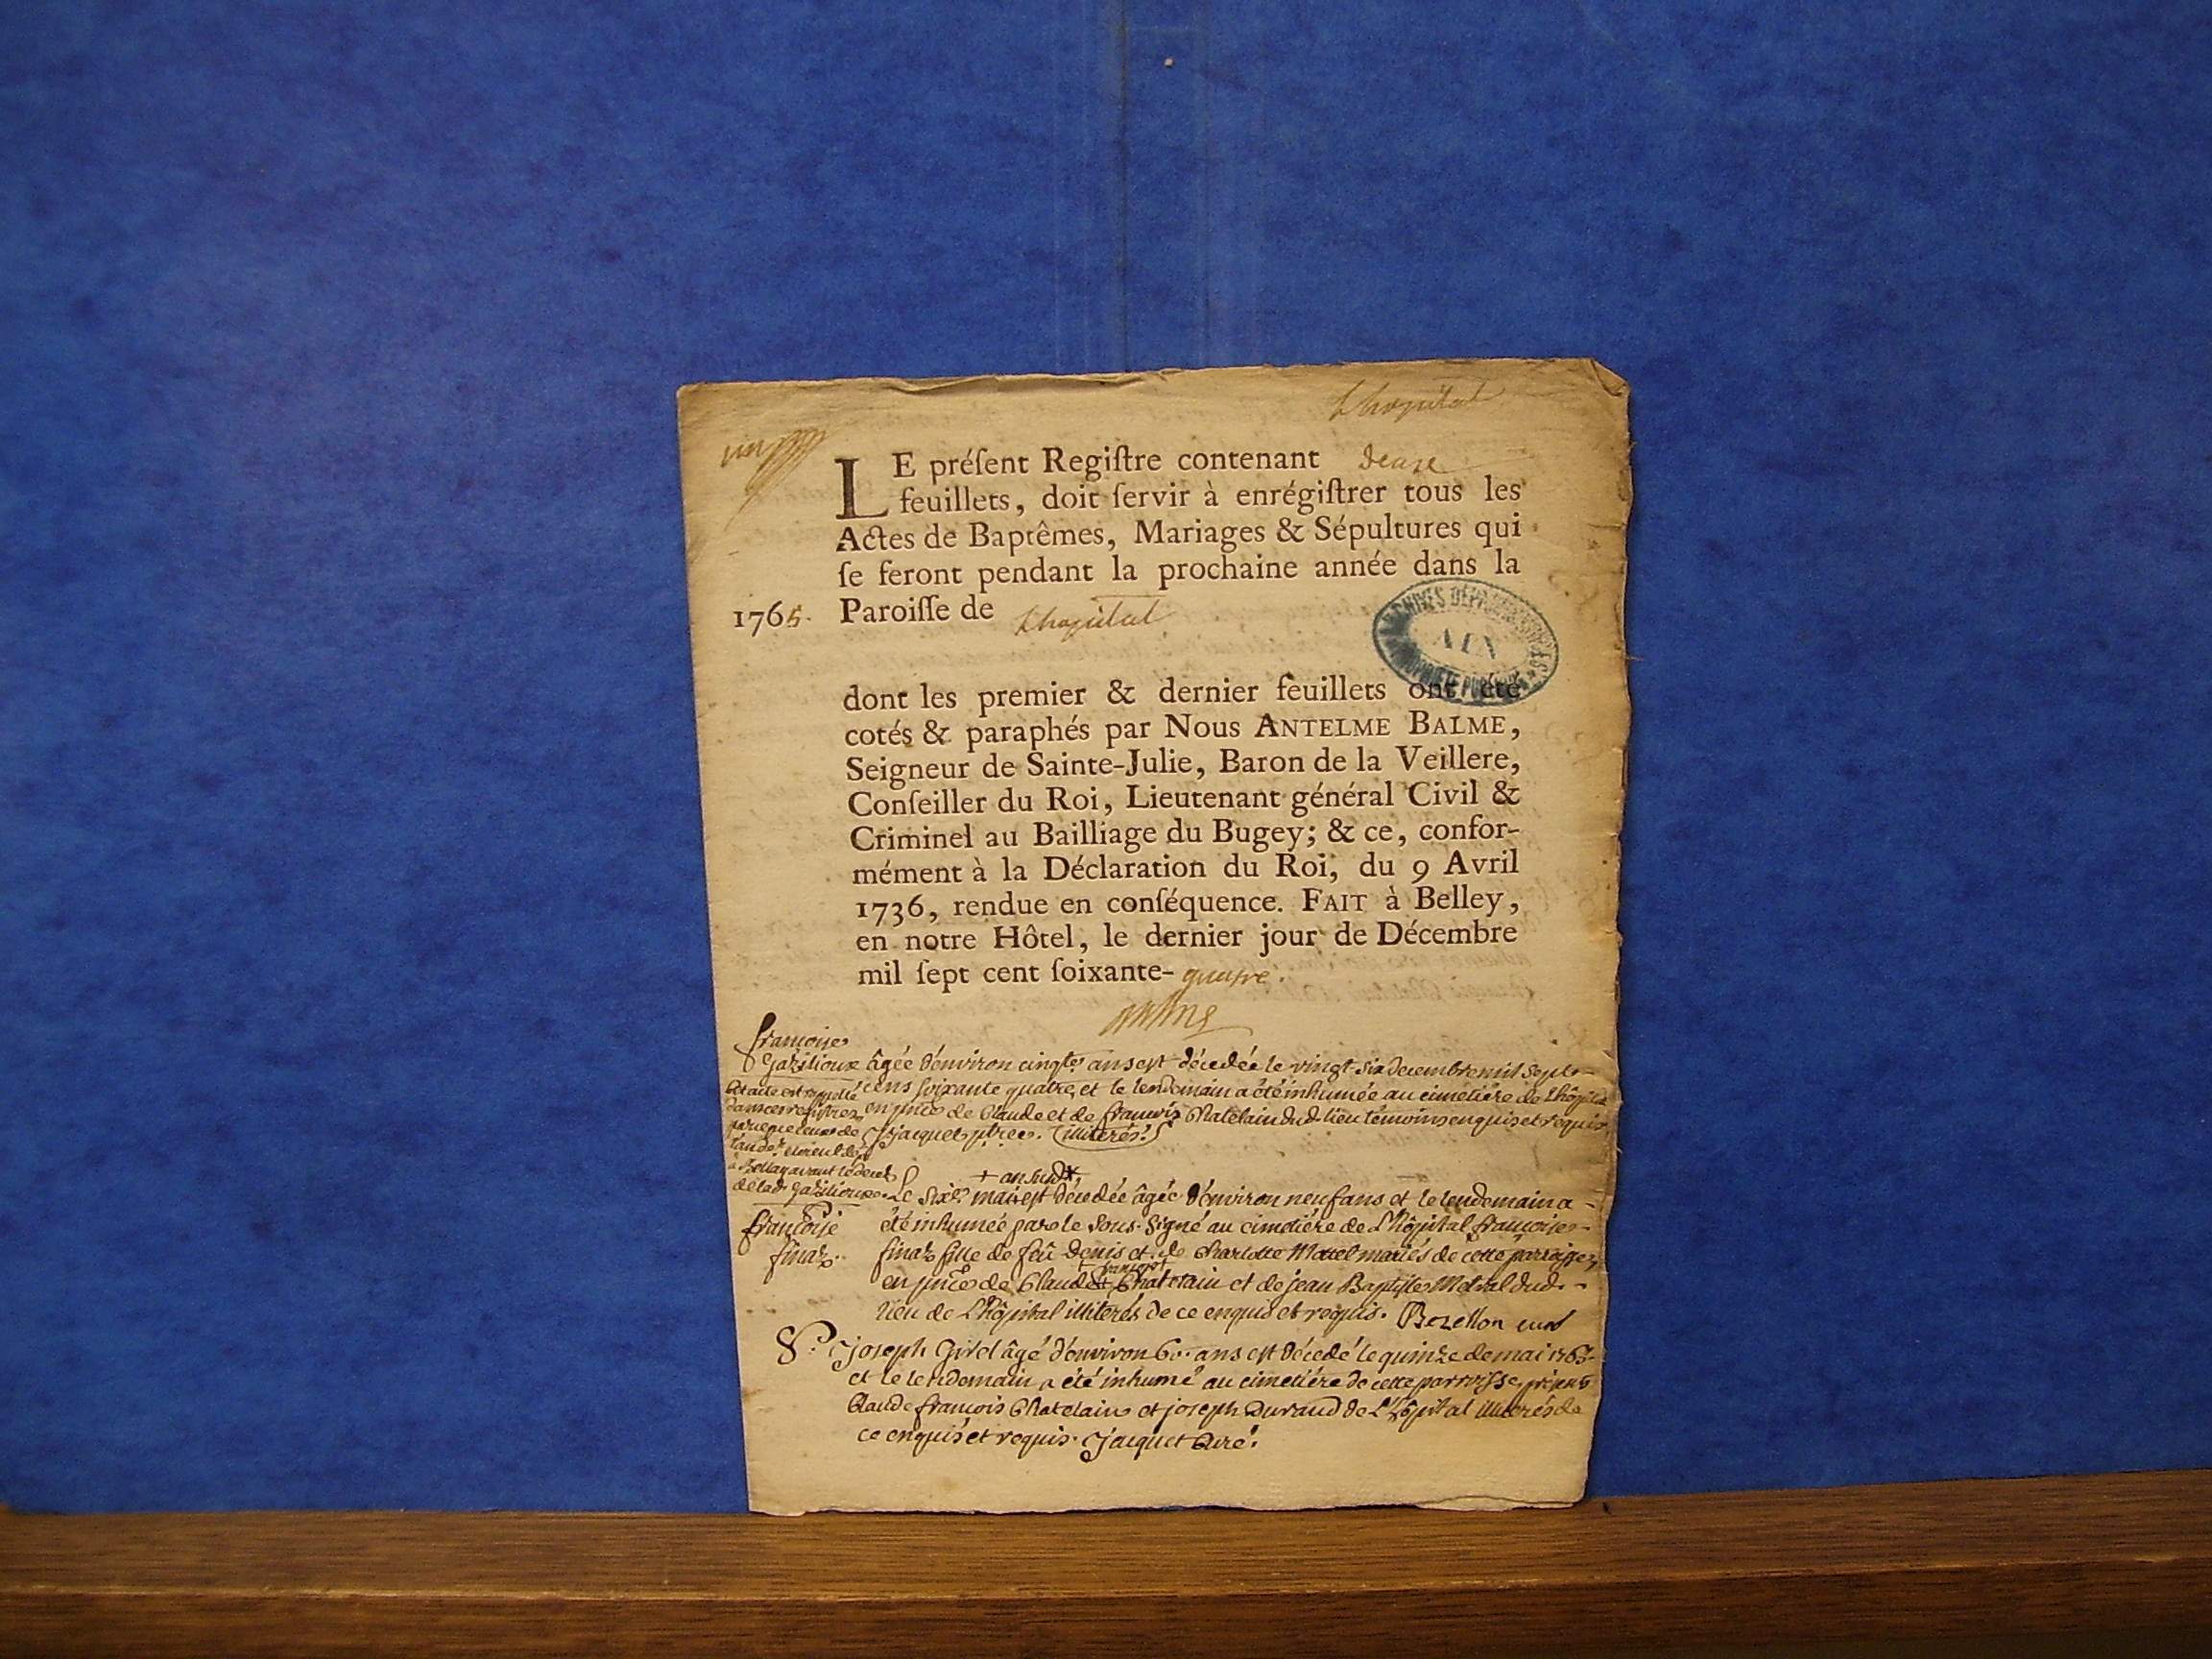 Lhopital
LE préſent Regiſtre contenant deux
feuillets, doit ſervir à enrégiſtrer tous les
Actes de Baptêmes, Mariages & Sépultures qui
ſe feront pendant la prochaine année dans la
1765. Paroiſſe de Lhopital
ARCHIVES DÉPARTEMENTALES
AIN
PROPRIÉTÉ PUBLIQUE
dont les premier & dernier feuillets ont été
cotés & paraphés par Nous ANTELME BALME,
Seigneur de Sainte-Julie, Baron de la Veillere,
Conſeiller du Roi, Lieutenant général Civil &
Criminel au Bailliage du Bugey; & ce, confor-
mément à la Déclaration du Roi, du 9 Avril
1736, rendue en conſéquence. FAIT à Belley,
en notre Hôtel, le dernier jour de Décembre
mil ſept cent ſoixante- quatre.
Balme
françoise
Gazilioux âgée d'environ cingt ans est décedée le vingt six decembre mil sept-
cens soixante quatre, et le lendemain a été inhumée au cimetiére de Lhôpital
en pnce de Claude et de françois Chatelain dud. lieu témoins enquis et requis
Jacquet ptre. (illiterés)
Cet acte est
dans
à Belley avant le decès
de lad. Gazilioux.
+ an susd +
Le six mai est décedée âgée d'environ neuf ans et le lendemain a -
françoise été inhumée par le sous-signé au cimetiére de L'hôpital françoise
finaz. finaz fille de feû denis et de Charlotte Mottet mariés de cette parroisse,
en pnce de Claude françois Chatelain et de jean Baptiste Metral dud. -
lieu de L'hôpital illiterés de ce enquis et requis. Bozellon curé
Sr. Joseph Girel âgé d'environ 60. ans est décedé le quinze de mai 1765.
et le lendemain a été inhumé au cimetiére de cette parroisse, présens
Claude françois Chatelain et joseph Durand de L'hôpital illiterés de
ce enquis et requis. Jacquet Curé.